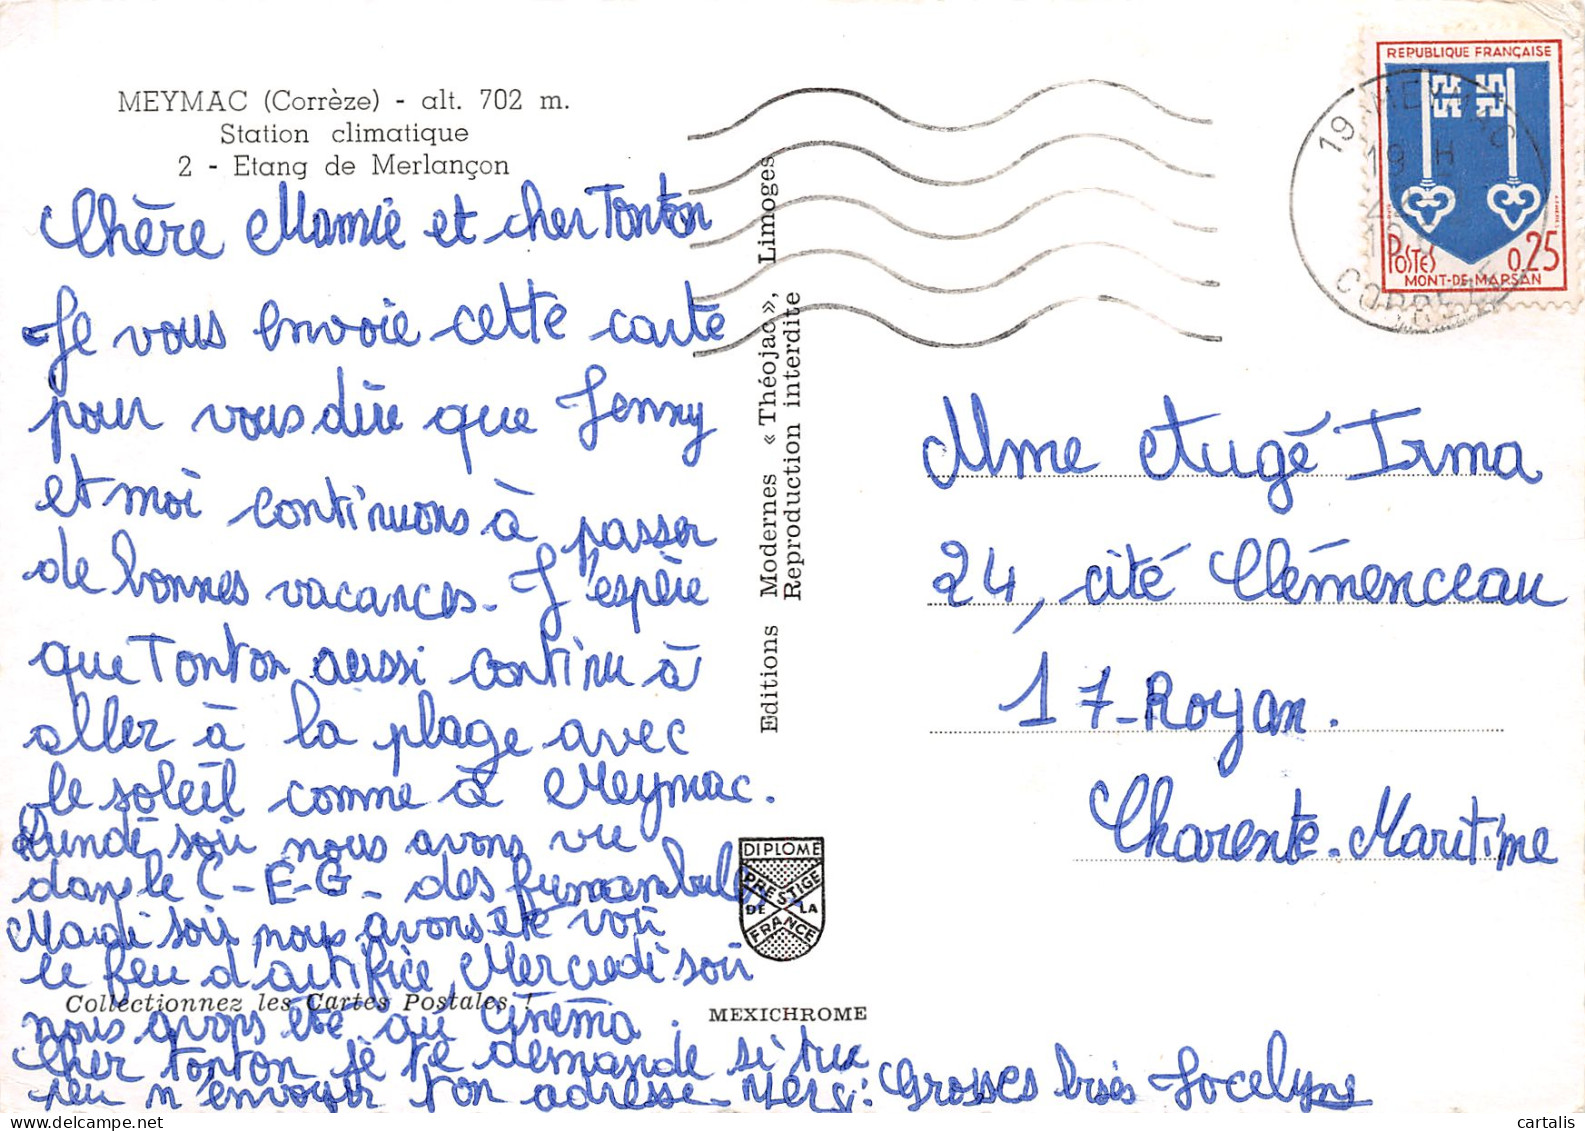 MEYMAC (Corrèze) - alt. 702 m.
Station climatique
2 - Etang de Merlançon
Chère Mamie et cher Tonton
Je vous envoie cette carte
pour vous dire que Jenny
et moi continuons à passer
de bonnes vacances. J'espère
que Tonton aussi continu à
aller à la plage avec
le soleil comme à Meymac.
Lundi soir nous avons vu
dans le C-E-G- des funambules
Mardi soir nous avons été voir
le feu d'artifice, Mercredi soir
nous avons été au Cinéma.
Cher tonton je te demande si tu
peu m'envoyer ton adresse - Merci.
Grosses bises Jocelyne
Collectionnez les Cartes Postales !
Editions Modernes « Théojac », Limoges
Reproduction interdite
DIPLOME
PRESTIGE
DE LA
FRANCE
MEXICHROME
REPUBLIQUE FRANÇAISE
POSTES 0,25
MONT-DE-MARSAN
19 MEYMAC
19 H
CORREZE
Mme Augé Irma
24, cité Clémenceau
17-Royan.
Charente-Maritime
cartalis